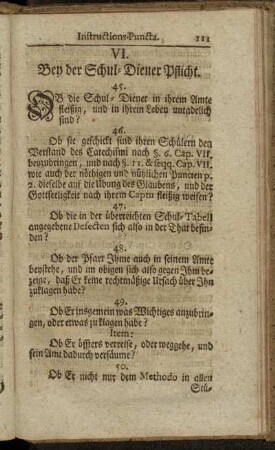 Instructions-Puncta. 111
VI.
Bey der Schul-Diener Pflicht.
45.
OB die Schul-Diener in ihrem Amte
fleißig, und in ihrem Leben untadelich
sind?
46.
Ob sie geschickt sind ihren Schülern den
Verstand des Catechismi nach §. 6. Cap. VII.
beyzubringen, und nach §. 11. & seqq. Cap. VII.
wie auch der nöthigen und nützlichen Puncten p.
2. dieselbe auf die Ubung des Glaubens, und der
Gottseligkeit nach ihrem Captu fleißig weisen?
47.
Ob die in der überreichten Schul-Tabell
angegebene Defecten sich also in der That befin-
den?
48.
Ob der Pfarr Ihme auch in seinem Amte
beystehe, und im obigen sich also gegen Ihm be-
zeige, daß Er keine rechtmäßige Ursach über Ihn
zuklagen habe?
49.
Ob Er insgemein was Wichtiges anzubrin-
gen, oder etwas zu klagen habe?
Item:
Ob Er öffters verreise, oder weggehe, und
sein Amt dadurch versäume?
50.
Ob Er nicht nur dem Methodo in allen
Stü-